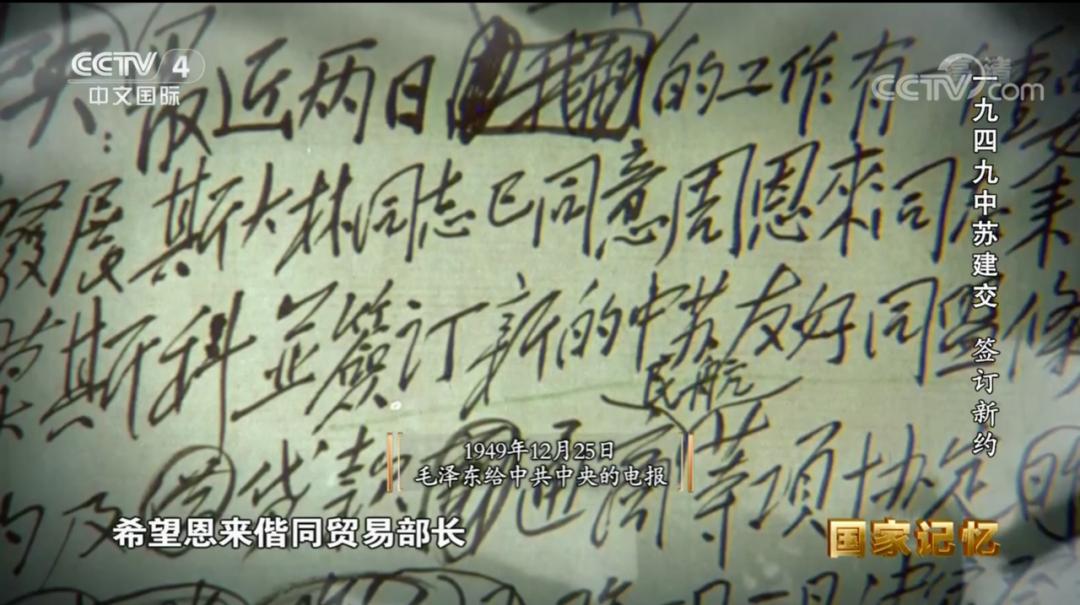 CCTV 4
中文国际
CCTV.com
高清
一九四九中苏建交 签订新约
央：最近两日的工作有一個重
發展斯大林同志已同意周恩來同志来
莫斯科並簽訂新的中苏友好同盟條
民航
約及貸款通商等項协定
1949年12月25日
毛泽东给中共中央的电报
希望恩来偕同贸易部长
国家记忆